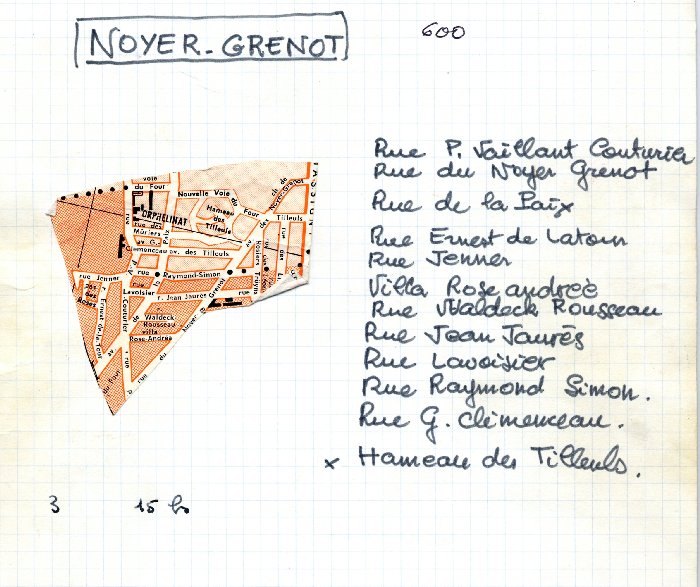 NOYER-GRENOT
600
Rue P. Vaillant Couturier
Rue du Noyer Grenot
Rue de la Paix
Rue Ernest de Latour
Rue Jenner
Villa Rose andrée
Rue Waldeck Rousseau
Rue Jean Jaurès
Rue Lavoisier
Rue Raymond Simon.
Rue G. Clémenceau.
x Hameau des Tilleuls.
3
15
voie
du Four
Nouvelle Voie
du Four
ORPHELINAT
Hameau
des
Tilleuls
des Tilleuls
ch. de
Noyer-Grenot
rue des
Mûriers
av. G.
Clemenceau
av. des Tilleuls
rue Jenner
rue
Raymond-Simon
Lavoisier
r. Jean Jaurès
Grenot
Waldeck
Rousseau
villa
Rose-Andrée
Couturier
r. Ernest-de-la-Tour
des
Roses
rue
du
Noyer